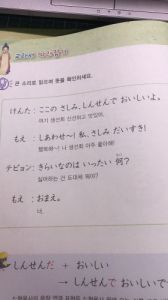 큰 소리로 읽으며 뜻을 확인하세요.
けんた : ここの さしみ、しんせんで おいしいよ。
여기 생선회 신선하고 맛있어.
もえ : しあわせ~! 私、さしみ だいすき!
행복해~! 나 생선회 아주 좋아해!
チヒョン : きらいなのは いったい 何?
싫어하는 건 도대체 뭐야?
もえ : おまえ。
너.
しんせんだ + おいしい
→ しんせんで おいしいで